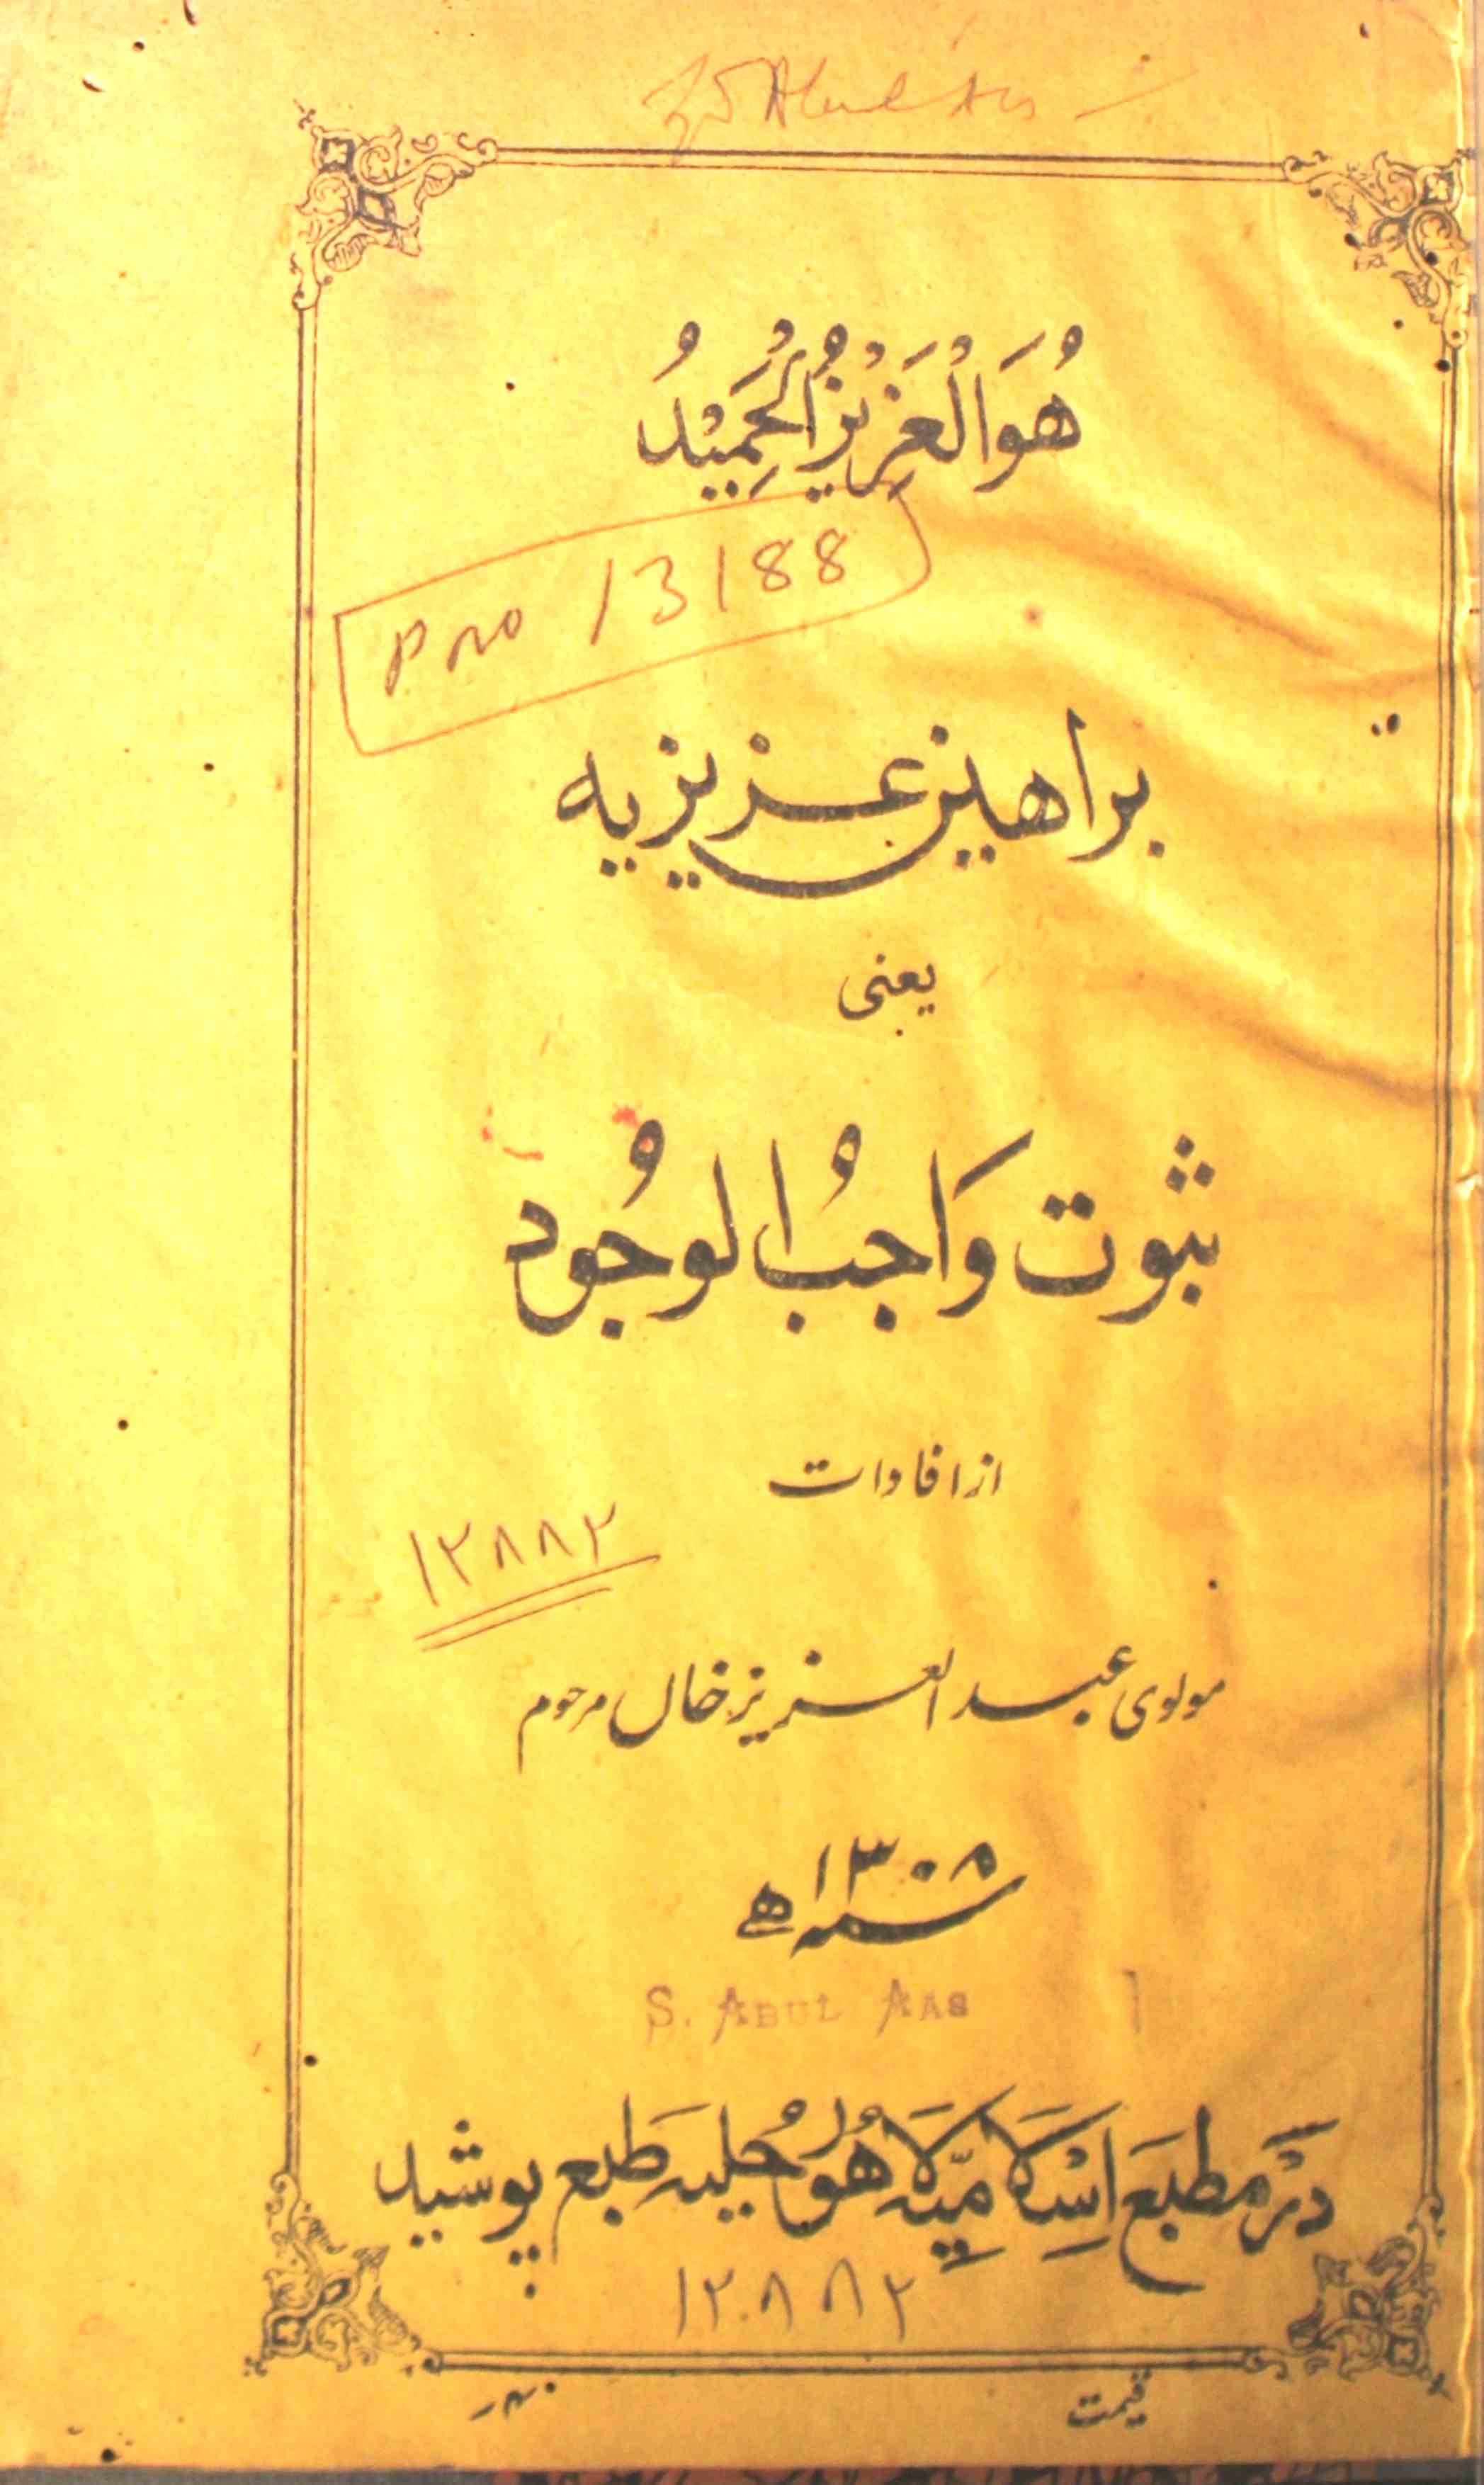 Abul Aas
هُوَالْعَزِيْزُالْحَمِيْدُ
P no 13188
براهین عزیزیه
یعنی
ثبوت وَاجبُ الوجُود
از افادات
۱۲۸۸۲
مولوی عبدالعزیز خاں مرحوم
سنہ ۱۳۰۸ ھ
S. ABUL AAS
دَرْمطبَع اِسْلَامِیَّہ لَاھُوْرحُلیہ طَبع پوشید
۱۲۸۸۲
قیمت